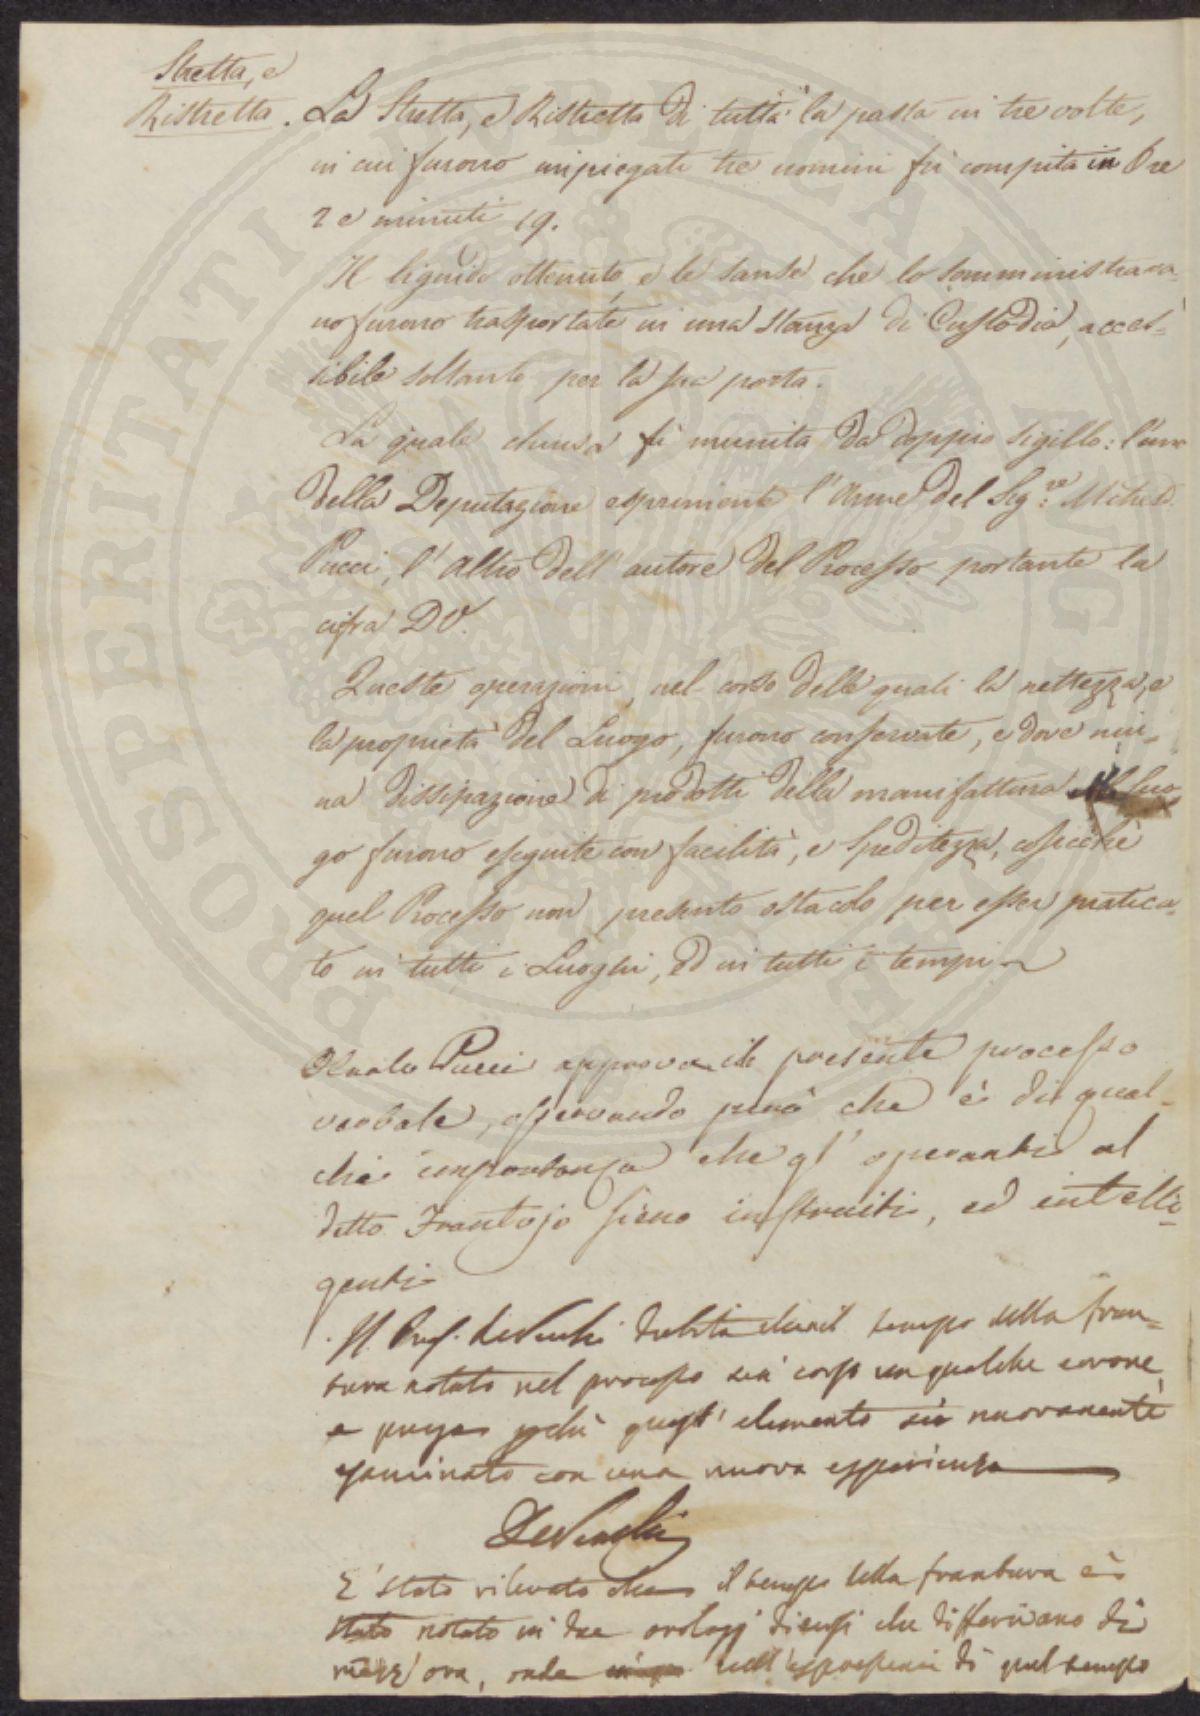 Stretta, e
Ristretta.
La Stretta, e Ristretta di tutta la pasta in tre volte,
in cui furono impiegati tre uomini fù compita in Ore
2 e minuti 19.
Il liquido ottenuto, e le sanse che lo somministrava-
no furono trasportate in una stanza di Custodia, acces-
sibile soltanto per la sua porta.
La quale chiusa fù munita da doppio sigillo: l'uno
della Deputazione esprimente l'Arme del Sig.re
Pucci, l'altro dell'autore del Processo portante la
cifra DV.
Queste operazioni, nel corso delle quali la nettezza, e
la proprietà del Luogo, furono conservate, e dove niu-
na dissipazione di prodotti della manifattura luo
go furono eseguite con facilità, e speditezza, cosicchè
quel Processo non presento ostacolo per esser pratica-
to in tutti i Luoghi, ed in tutti i tempi
Pucci approva il presente processo
verbale, osservando però che è di qual-
che importanza che gl'operanti al
detto Frantojo sieno instruiti, ed intelli-
genti
Il Prof. dubita che nel tempo della fran-
tura notato nel processo sia corso un qualche errore
e prega quest'elemento sia nuovamente
esaminato con una nuova esperienza
E' stato rilevato che il tempo della frantura è
stato notato in due orologj diversi che differivano di
mezz'ora, onde nell'espressioni di quel tempo